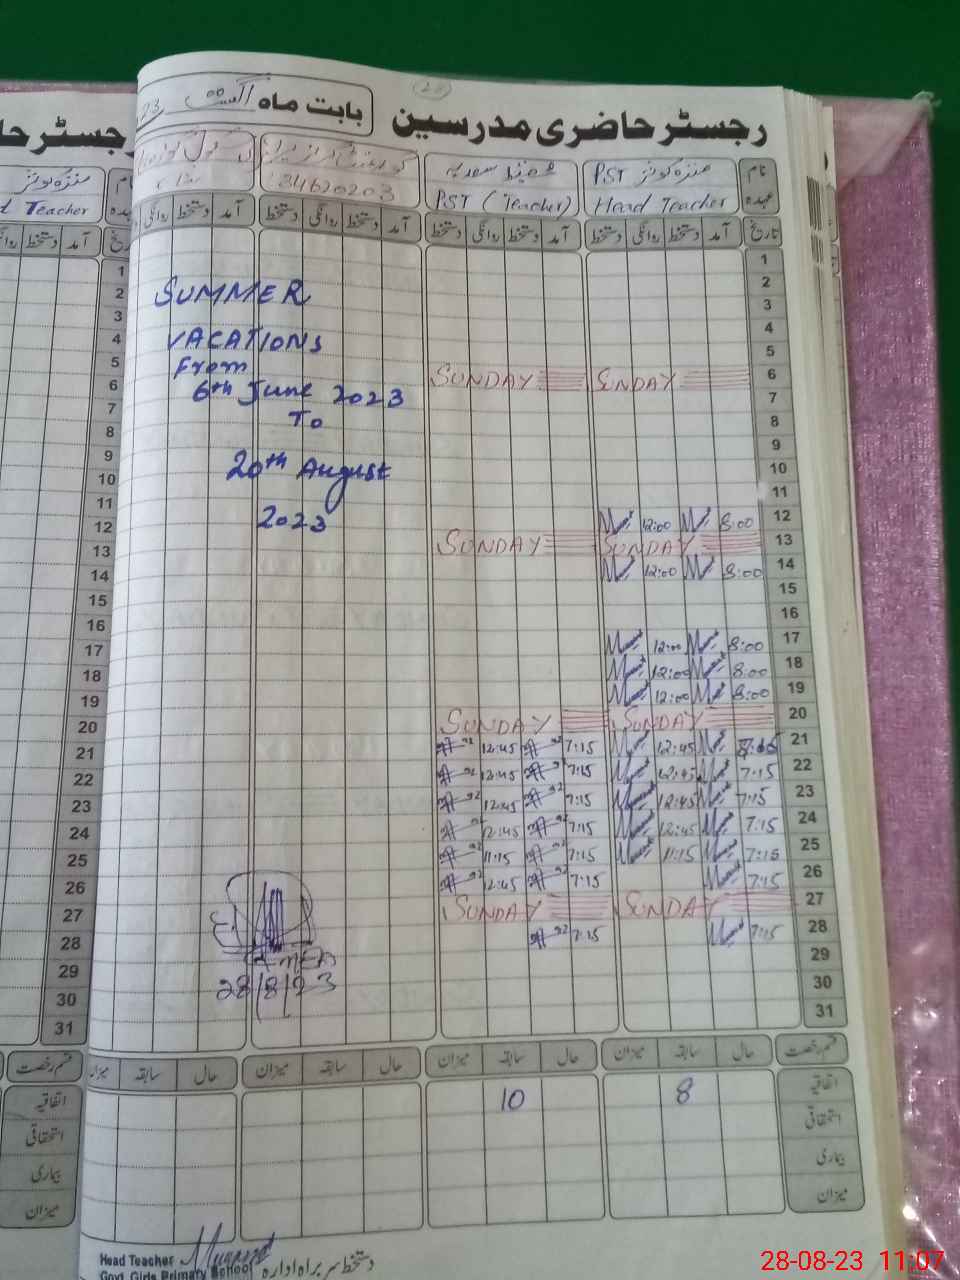 رجسٹر حاضری مدرسین
بابت ماہ اگست 23
نام
PST
عہدہ
Head Teacher
PST (Teacher)
34620203
تاریخ آمد دستخط روانگی دستخط آمد دستخط روانگی دستخط آمد دستخط روانگی دستخط آمد دستخط روانگی
Teacher
1
2
3
4
5
6 SUNDAY SUNDAY
7
8
9
10
11
12 8:00 12:00
13 SUNDAY SUNDAY
14 8:00 12:00
15
16
17 8:00 12:00
18 8:00 12:00
19 8:00 12:00
20 SUNDAY SUNDAY
21 12:45 7:15 12:45
22 7:15 12:45 7:15 12:45
23 7:15 12:45 7:15 12:45
24 7:15 12:45 7:15 12:45
25 7:15 11:15 7:15 11:15
26 7:15 7:15 12:45
27 SUNDAY SUNDAY
28 7:15 7:15
29
30
31
SUMMER
VACATIONS
From
6th June 2023
To
20th August
2023
28/8/23
قسم رخصت حال سابقہ میزان حال سابقہ میزان حال سابقہ میزان حال سابقہ
اتفاقیہ 8 10
استحقاقی
بیماری
میزان
Head Teacher
Govt. Girls Primary School
دستخط سربراہ ادارہ
28-08-23 11:07